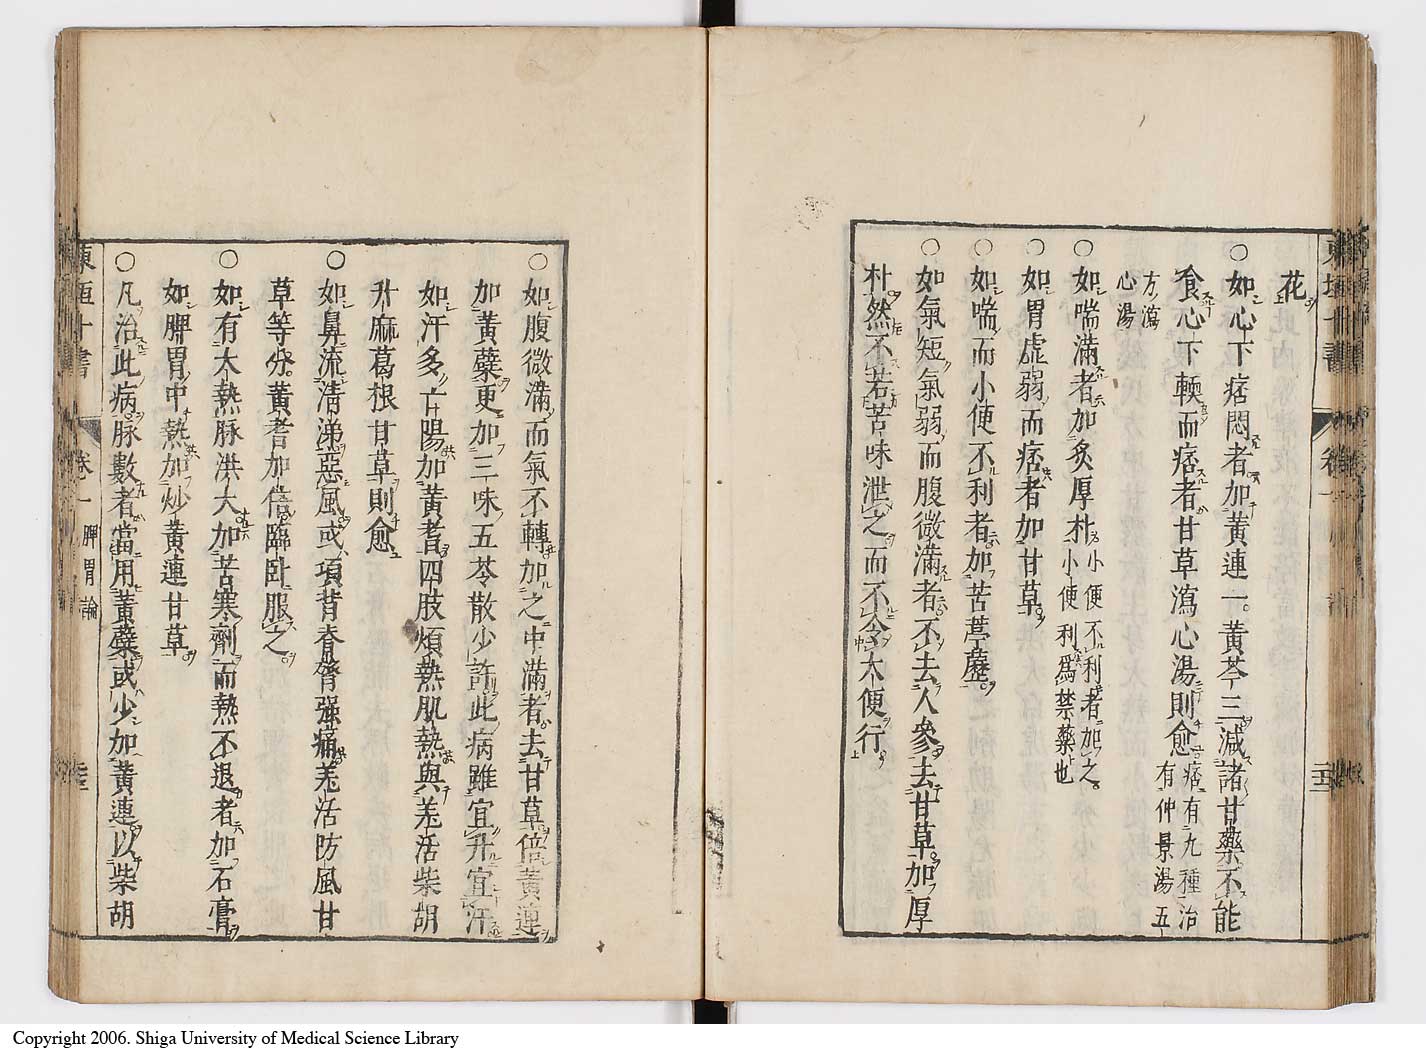 花
○如心下痞悶者加黃連一黃芩三減諸甘藥不能
食心下軟而痞者甘草瀉心湯則愈痞有九種治
有仲景湯五
方瀉
心湯
○如喘滿者加炙厚朴小便不利者加之
小便利爲禁藥也
○如胃虛弱而痞者加甘草
○如喘而小便不利者加苦葶藶
○如氣短氣弱而腹微滿者不去人參去甘草加厚
朴然不若苦味泄之而不令大便行
○如腹微滿而氣不轉加之中滿者去甘草倍黃連
加黃蘗更加三味五苓散少許此病雖宜升宜汗
如汗多亡陽加黃耆四肢煩熱肌熱與羌活柴胡
升麻葛根甘草則愈
○如鼻流清涕惡風或項背脊膂强痛羌活防風甘
草等分黃耆加倍臨卧服之
○如有大熱脉洪大加苦寒劑而熱不退者加石膏
如脾胃中熱加炒黃連甘草
○凡治此病脉數者當用黃蘗或少加黃連以柴胡
東垣十書 卷一 脾胃論
Copyright 2006. Shiga University of Medical Science Library